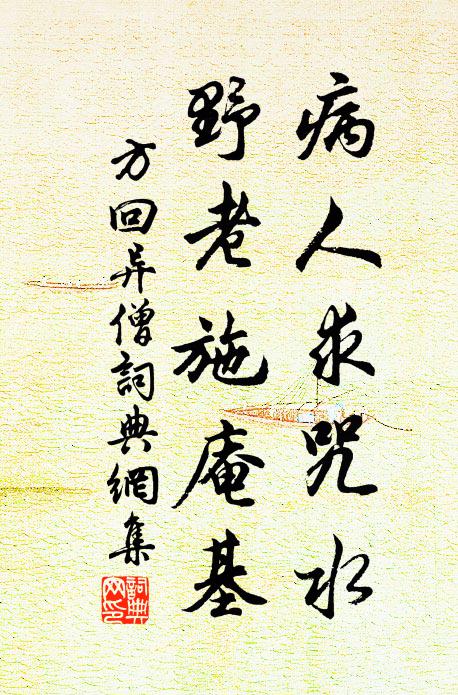 病人求咒水
野老施庵基
方回异僧詞典網集
詞典
网印